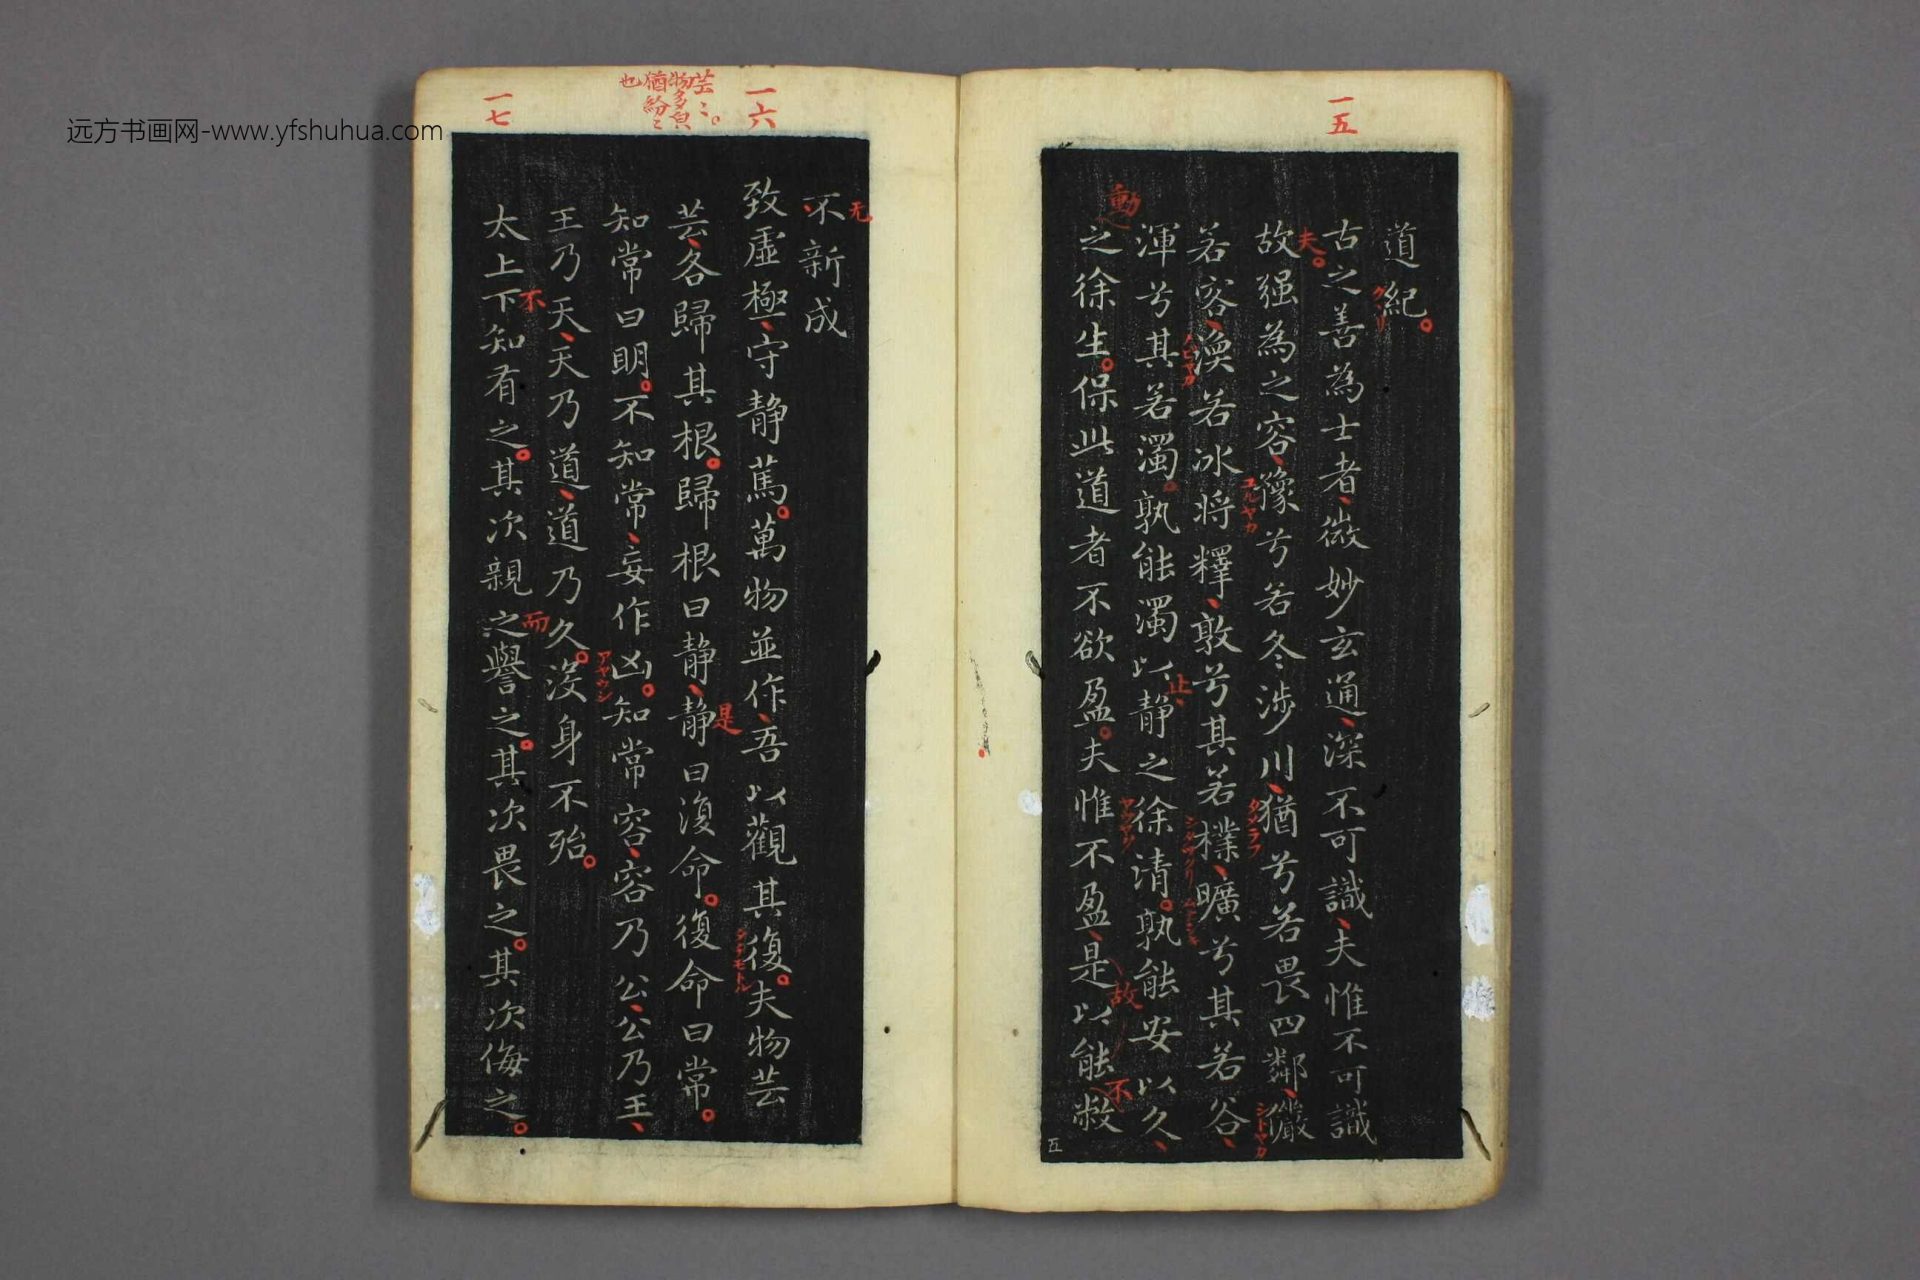 远方书画网-www.yfshuhua.com
一五
道紀
古之善為士者微妙玄通深不可識夫惟不可識
夫
故强為之容豫兮若冬涉川猶兮若畏四鄰儼
ユルヤカ
タメラフ
シトヤカ
若容渙若冰将釋敦兮其若樸曠兮其若谷
渾兮其若濁孰能濁以静之徐清孰能安以久
止
動
之徐生保此道者不欲盈夫惟不盈是以能敝
故
不
五
一六
芸〻
物多皃
猶紛〻
也
不新成
无
致虛極守静篤萬物並作吾以觀其復夫物芸
タチモトル
芸各歸其根歸根曰静静曰復命復命曰常
是
知常曰明不知常妄作凶知常容容乃公公乃王
王乃天天乃道道乃久没身不殆
アヤウシ
一七
太上下知有之其次親之譽之其次畏之其次侮之
不
而